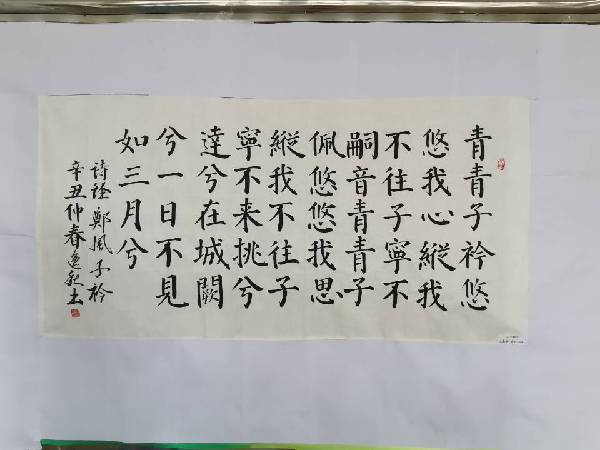 青青子衿悠
悠我心縱我
不往子寧不
嗣音青青子
佩悠悠我思
縱我不往子
寧不来挑兮
達兮在城闕
兮一日不見
如三月兮
詩経鄭風子衿
辛丑仲春